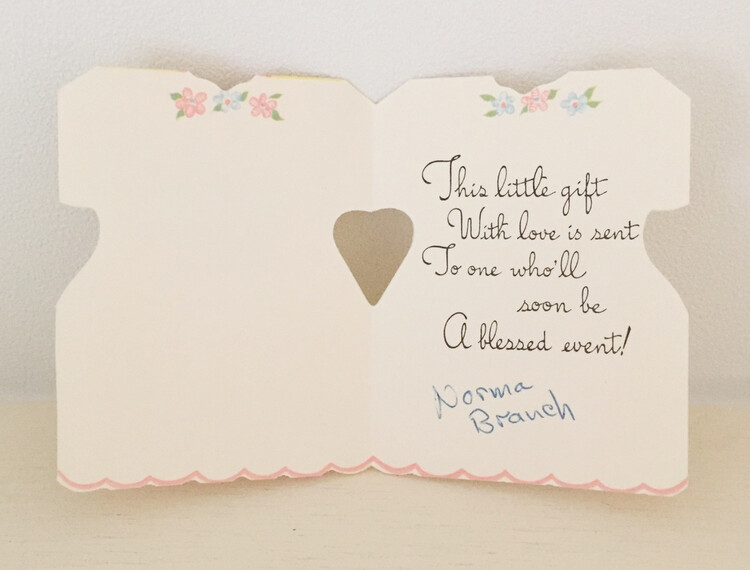 This little gift
With love is sent
To one who'll
soon be
A blessed event!
Norma
Branch